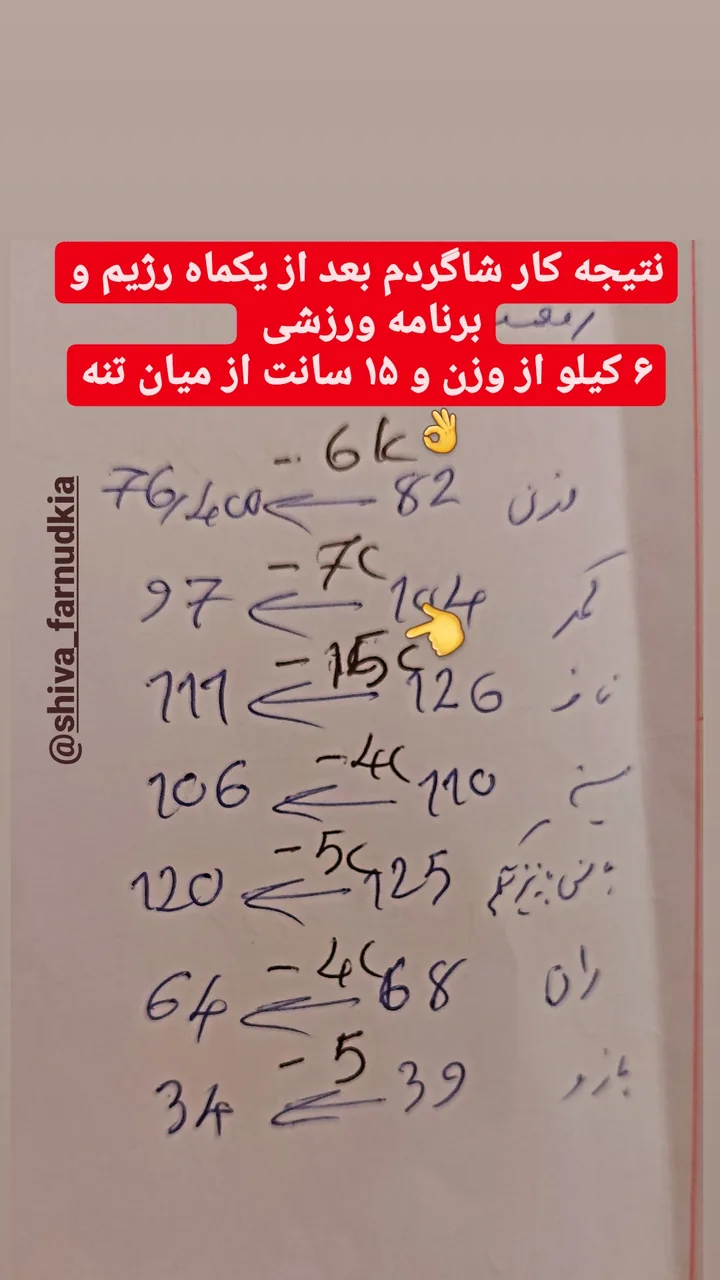 نتیجه کار شاگردم بعد از یکماه رژیم و
برنامه ورزشی
۶ کیلو از وزن و ۱۵ سانت از میان تنه
- 6k
وزن 82 ← 76,400
- 7c
کمر 104 ← 97
- 15c
ناف 126 ← 111
- 4c
سینه 110 ← 106
- 5c
باسن 125 ← 120
- 4c
ران 68 ← 64
- 5
بازو 39 ← 34
@shiva_farnudkia